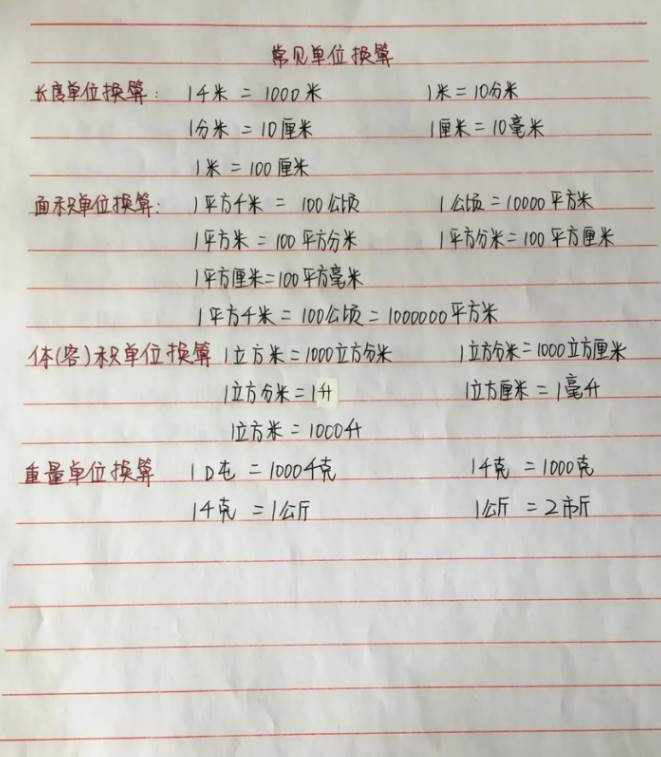 常见单位换算
长度单位换算: 1千米 = 1000米 1米 = 10分米
1分米 = 10厘米 1厘米 = 10毫米
1米 = 100厘米
面积单位换算: 1平方千米 = 100公顷 1公顷 = 10000平方米
1平方米 = 100平方分米 1平方分米 = 100平方厘米
1平方厘米 = 100平方毫米
1平方千米 = 100公顷 = 1000000平方米
体(容)积单位换算 1立方米 = 1000立方分米 1立方分米 = 1000立方厘米
1立方分米 = 1升 1立方厘米 = 1毫升
1立方米 = 1000升
重量单位换算 1吨 = 1000千克 1千克 = 1000克
1千克 = 1公斤 1公斤 = 2市斤